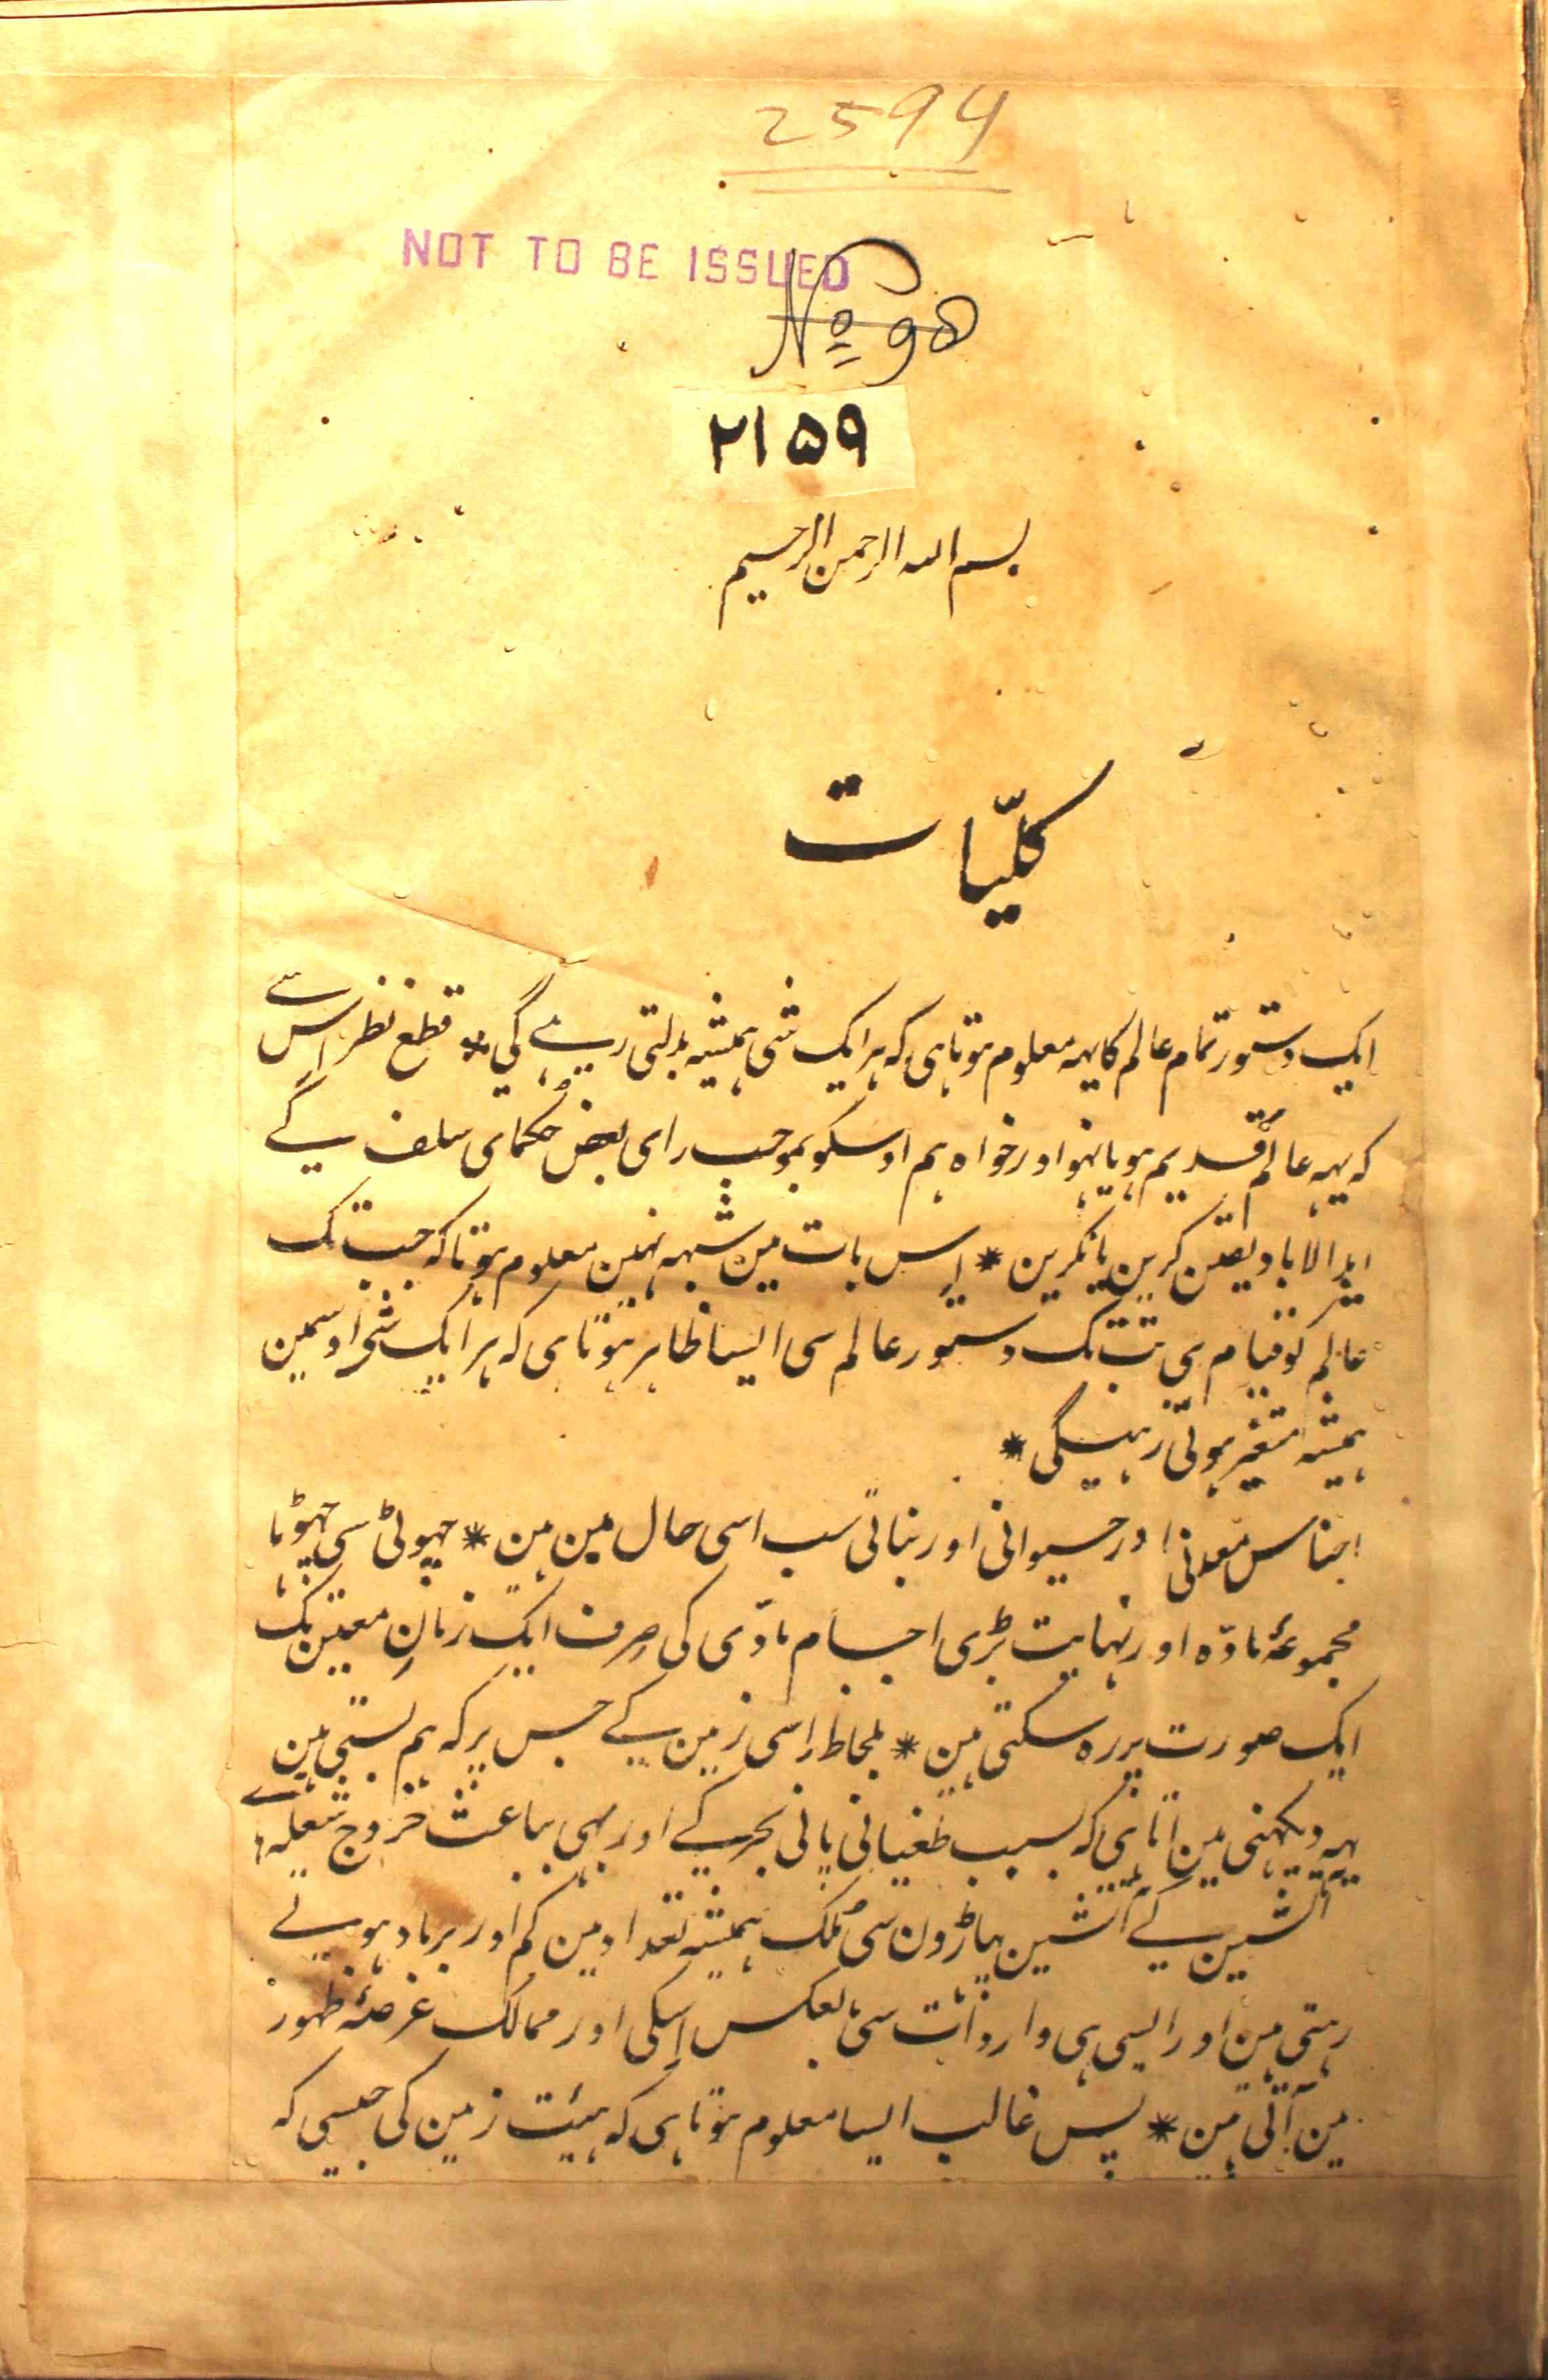 2594
NOT TO BE ISSUED
No 98
۲۱۵۹
بسم الله الرحمن الرحیم
کلیّات
ایک دستور تمام عالم کا یہہ معلوم ہوتا ہی کہ ہر ایک شی ہمیشہ بدلتی رہے گی * قطع نظر اس سے
کہ یہہ عالم قدیم ہو یا نہو اور خواہ ہم اوسکو بموجب رای بعض حکمای سلف کے
ابدالاباد یقین کرین یا نکرین * اِس بات مین شبہہ نہین معلوم ہوتا کہ جب تک
عالم کو قیام ہی تب تک دستور عالم سی ایسا ظاہر ہوتا ہی کہ ہر ایک شی اوسمین
ہمیشہ متغیر ہوتی رہیگی *
اجناس معدنی اور حیوانی اور نباتی سب اسی حال مین ہین * چہوٹی سی چہوٹا
مجموعۂ مادّہ اور نہایت بڑی اجسام مادّی کی صرف ایک زمانِ معین تک
ایک صورت پر رہ سکتی ہین * بلحاظ اِسی زمین کے جس پر کہ ہم بستی ہین
یہہ دیکہنی مین آتا ہی کہ بسبب طغیانی پانی بحر کے اور بہی بباعث خروج شعلہ ہے
آتشین کے آتشین پہاڑون سی مُلک ہمیشہ تعداد مین کم اور برباد ہوتے
رہتی ہین اور ایسی ہی واردات سی بعکس اِسکی اور ممالک عرصۂ ظہور
مین آتی ہین * پس غالب ایسا معلوم ہوتا ہی کہ ہیئت زمین کی جیسی کہ